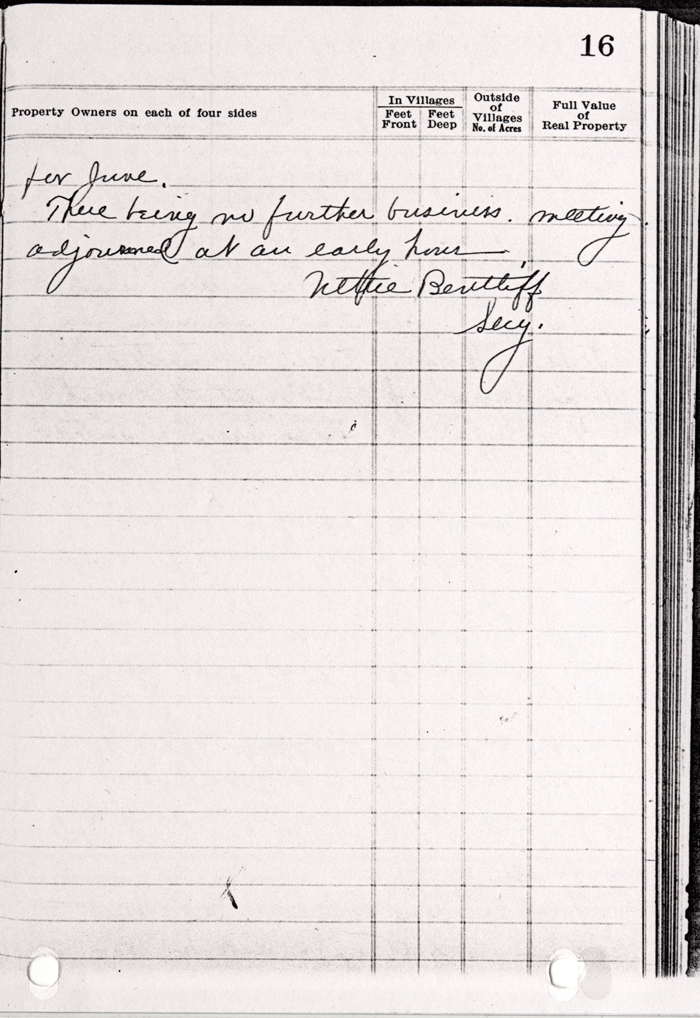 16
Property Owners on each of four sides
In Villages
Feet Front
Feet Deep
Outside of Villages No. of Acres
Full Value of Real Property
for June.
There being no further business. meeting
adjourned at an early hour.
Nettie Bentliff
Secy.